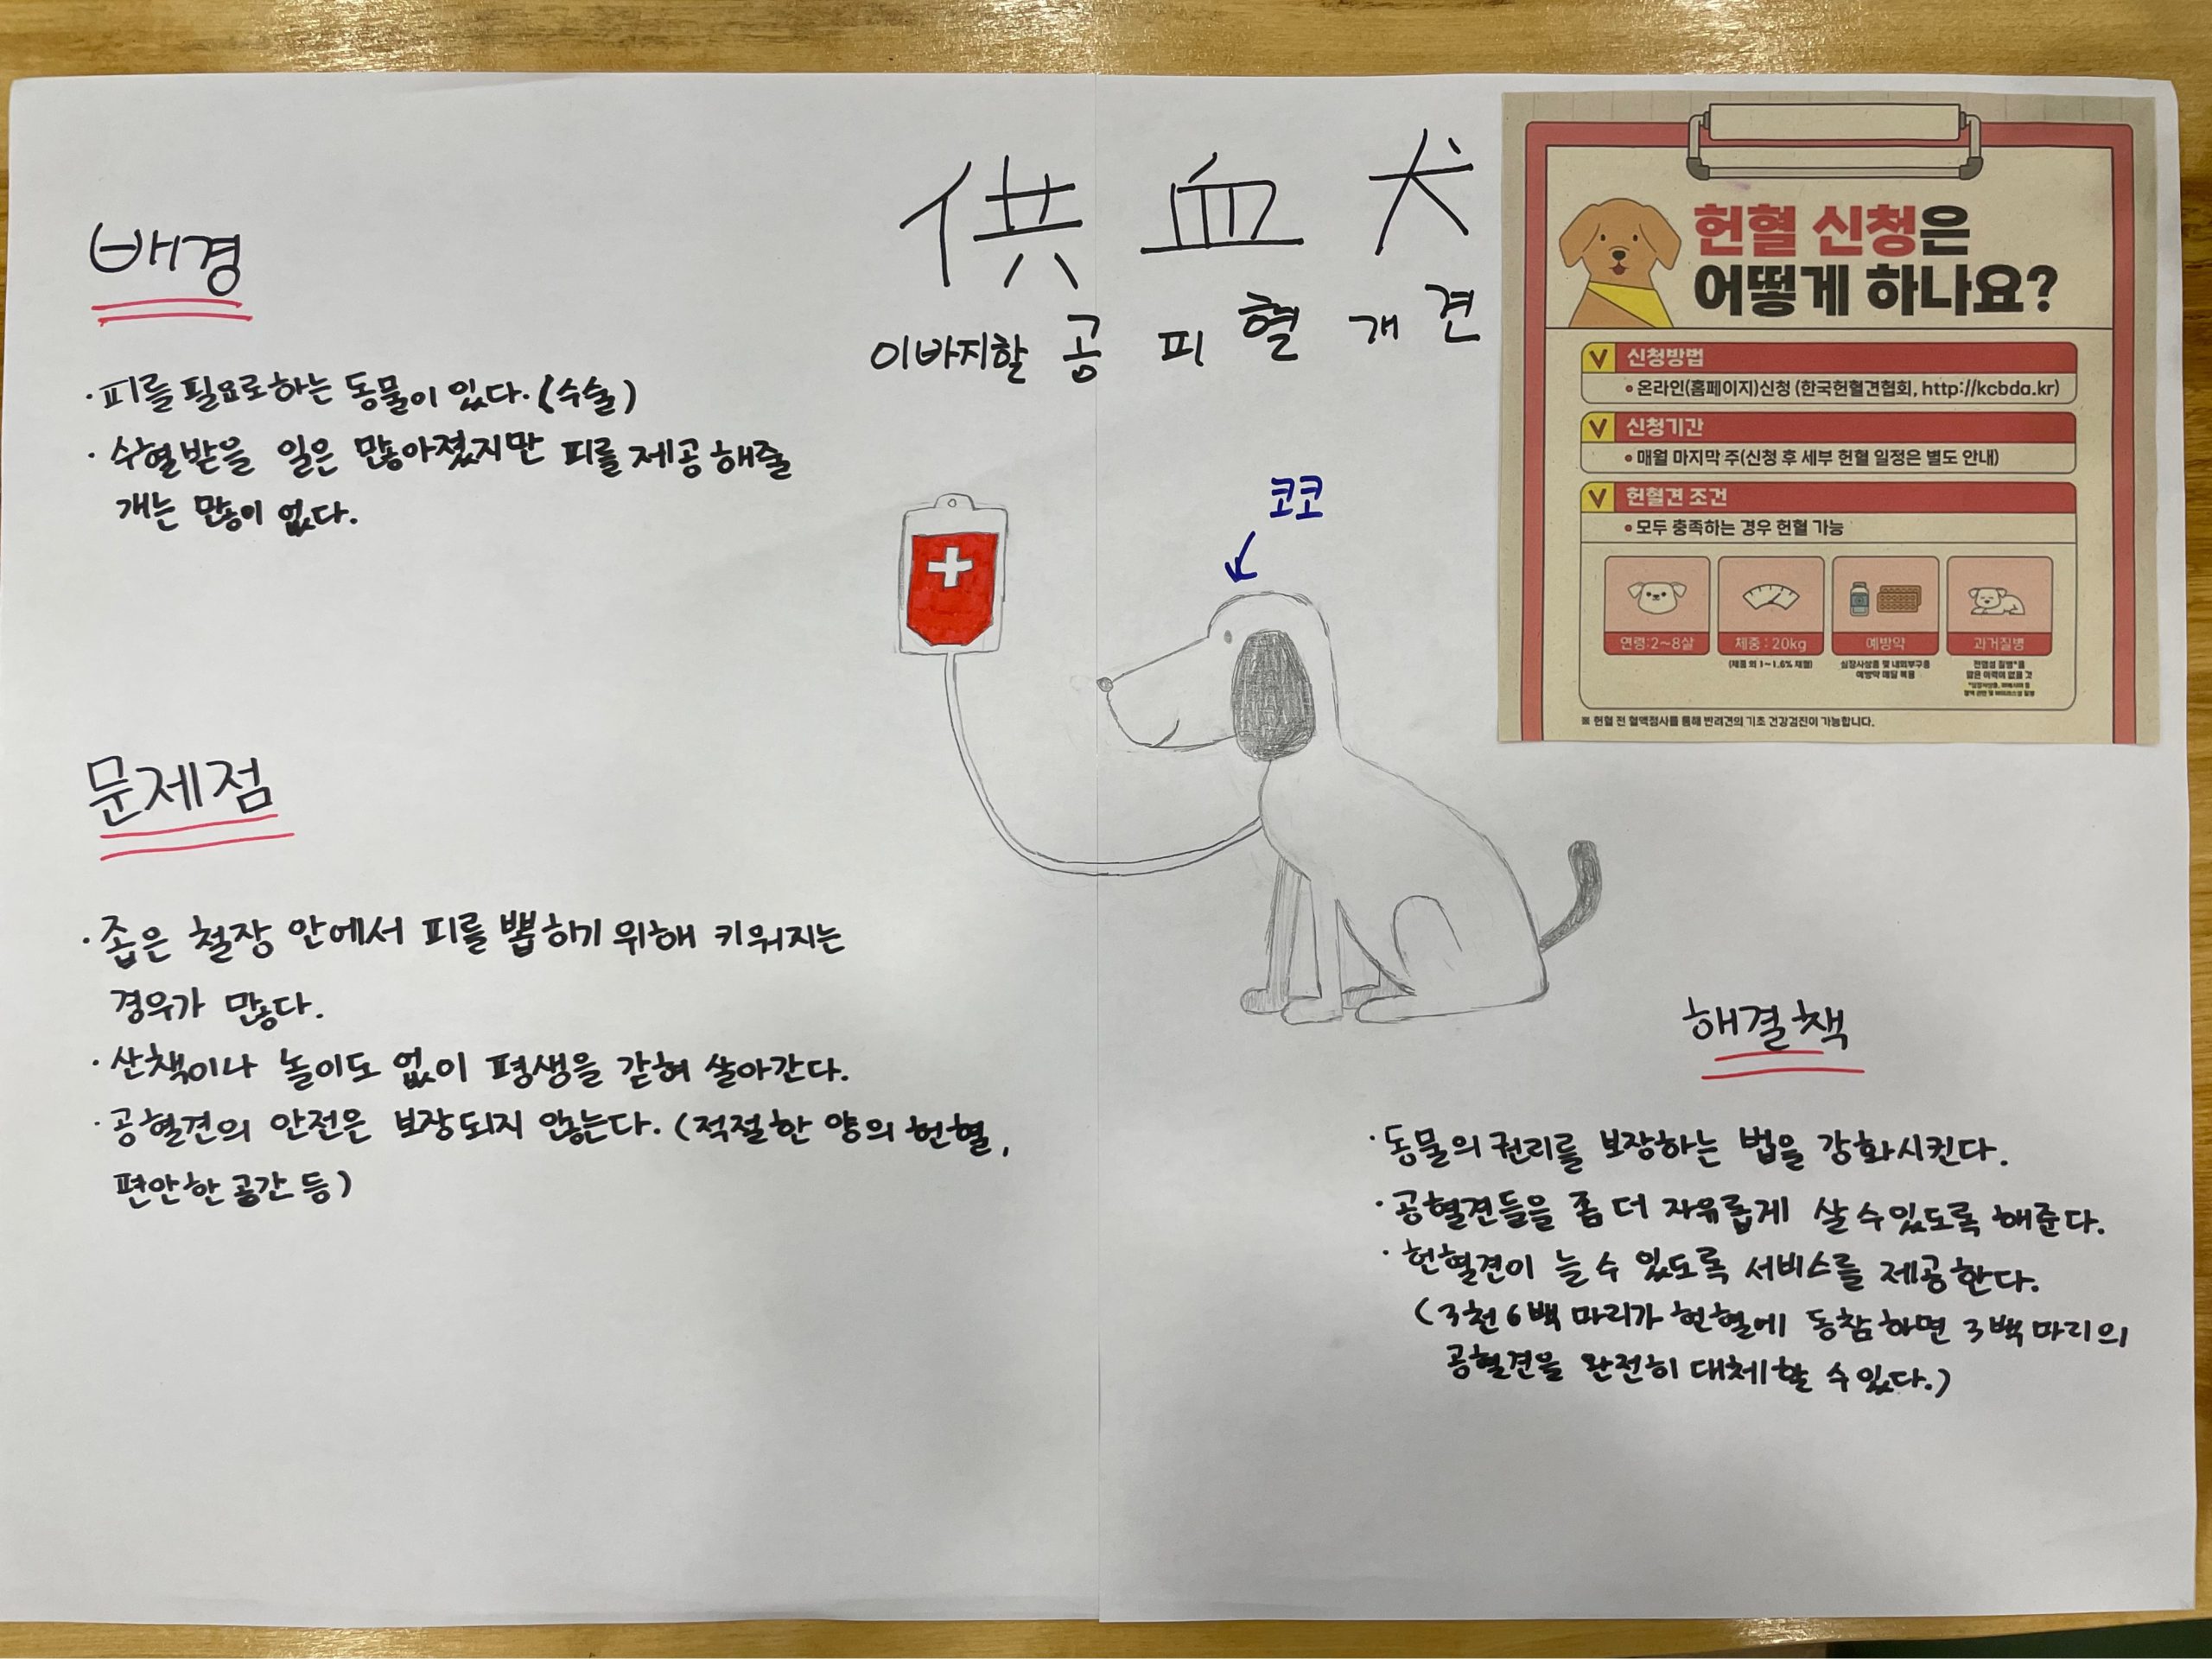 供血犬
이바지할 공 피 혈 개 견
배경
· 피를 필요로하는 동물이 있다. (수술)
· 수혈받을 일은 많아졌지만 피를 제공해줄
개는 많이 없다.
문제점
· 좁은 철장 안에서 피를 뽑히기 위해 키워지는
경우가 많다.
· 산책이나 놀이도 없이 평생을 갇혀 살아간다.
· 공혈견의 안전은 보장되지 않는다. (적절한 양의 헌혈,
편안한 공간 등)
코코
헌혈 신청은
어떻게 하나요?
V 신청방법
• 온라인(홈페이지)신청 (한국헌혈견협회, http://kcbda.kr)
V 신청기간
• 매월 마지막 주(신청 후 세부 헌혈 일정은 별도 안내)
V 헌혈견 조건
• 모두 충족하는 경우 헌혈 가능
연령:2~8살
체중 : 20kg
(체중 의 1~1.6% 채혈)
예방약
심장사상충 및 내외부구충
예방약 매달 복용
과거질병
전염성 질병*을
앓은 이력이 없을 것
※ 헌혈 전 혈액검사를 통해 반려견의 기초 건강검진이 가능합니다.
해결책
· 동물의 권리를 보장하는 법을 강화시킨다.
· 공혈견들을 좀 더 자유롭게 살 수 있도록 해준다.
· 헌혈견이 늘 수 있도록 서비스를 제공한다.
(3천6백 마리가 헌혈에 동참하면 3백 마리의
공혈견을 완전히 대체할 수 있다.)